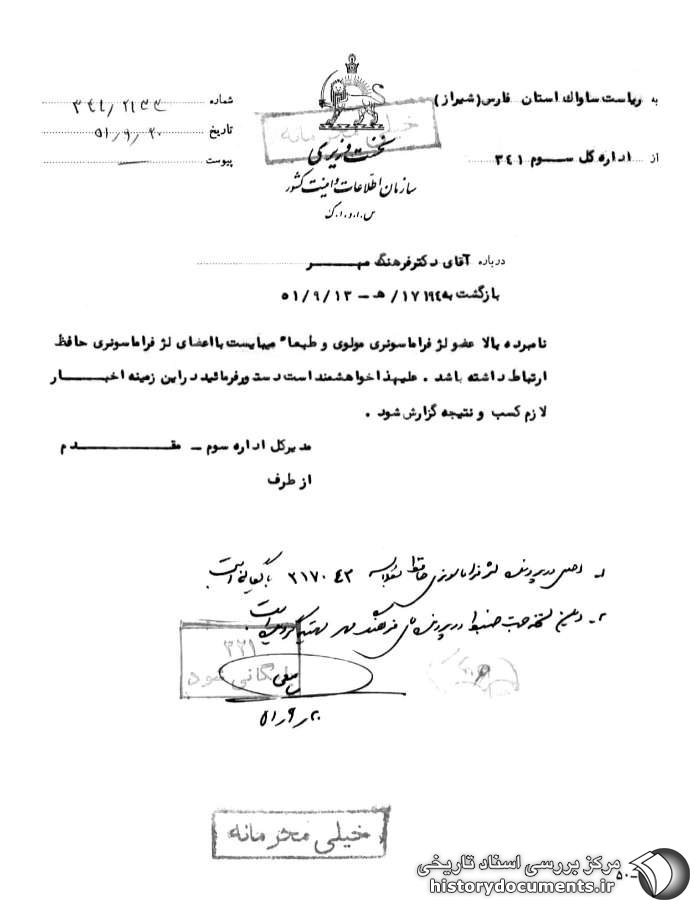 به ریاست ساواك استان فارس(شیراز)
از اداره كل سوم ۳٤۱
خیلی محرمانه
نخست وزیری
سازمان اطلاعات و امنیت کشور
س.ا.و.ا.ك
شماره
تاریخ ۵۱/۹/۲۰
پیوست
درباره آقای دكتر فرهنگ مهر
بازگشت به ۱۷۱۹٤/ هـ - ۵۱/۹/۱۳
نامبرده بالا عضو لژ فراماسونری مولوی و طبعاً میبایست با اعضای لژ فراماسونری حافظ
ارتباط داشته باشد . علیهذا خواهشمند است دستور فرمائید در این زمینه اخبار
لازم كسب و نتیجه گزارش شود .
مدیركل اداره سوم - مقدم
از طرف
۱- اصل در پرونده لژ فراماسونری حافظ ۲۱۷۰۴۳ بایگانی است
۲- فرهنگ مهر
۳۲۱
بایگانی شود
۵۱/۹/۲۰
خیلی محرمانه
مرکز بررسی اسناد تاریخی
historydocuments.ir
۵۰-